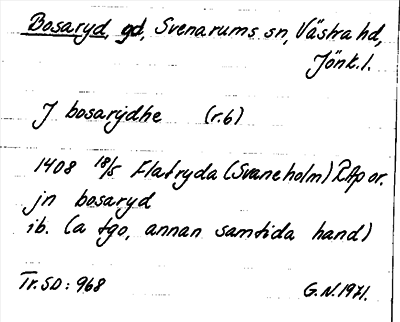 Bosaryd, gd, Svenarums sn, Västra hd,
Jönk. l.
J bosarydhe (r. 6)
1408 18/5 Flatryda (Svaneholm) RAp or.
jn bosaryd
ib. (a tgo, annan samtida hand)
Tr. SD: 968
G.N. 1971.